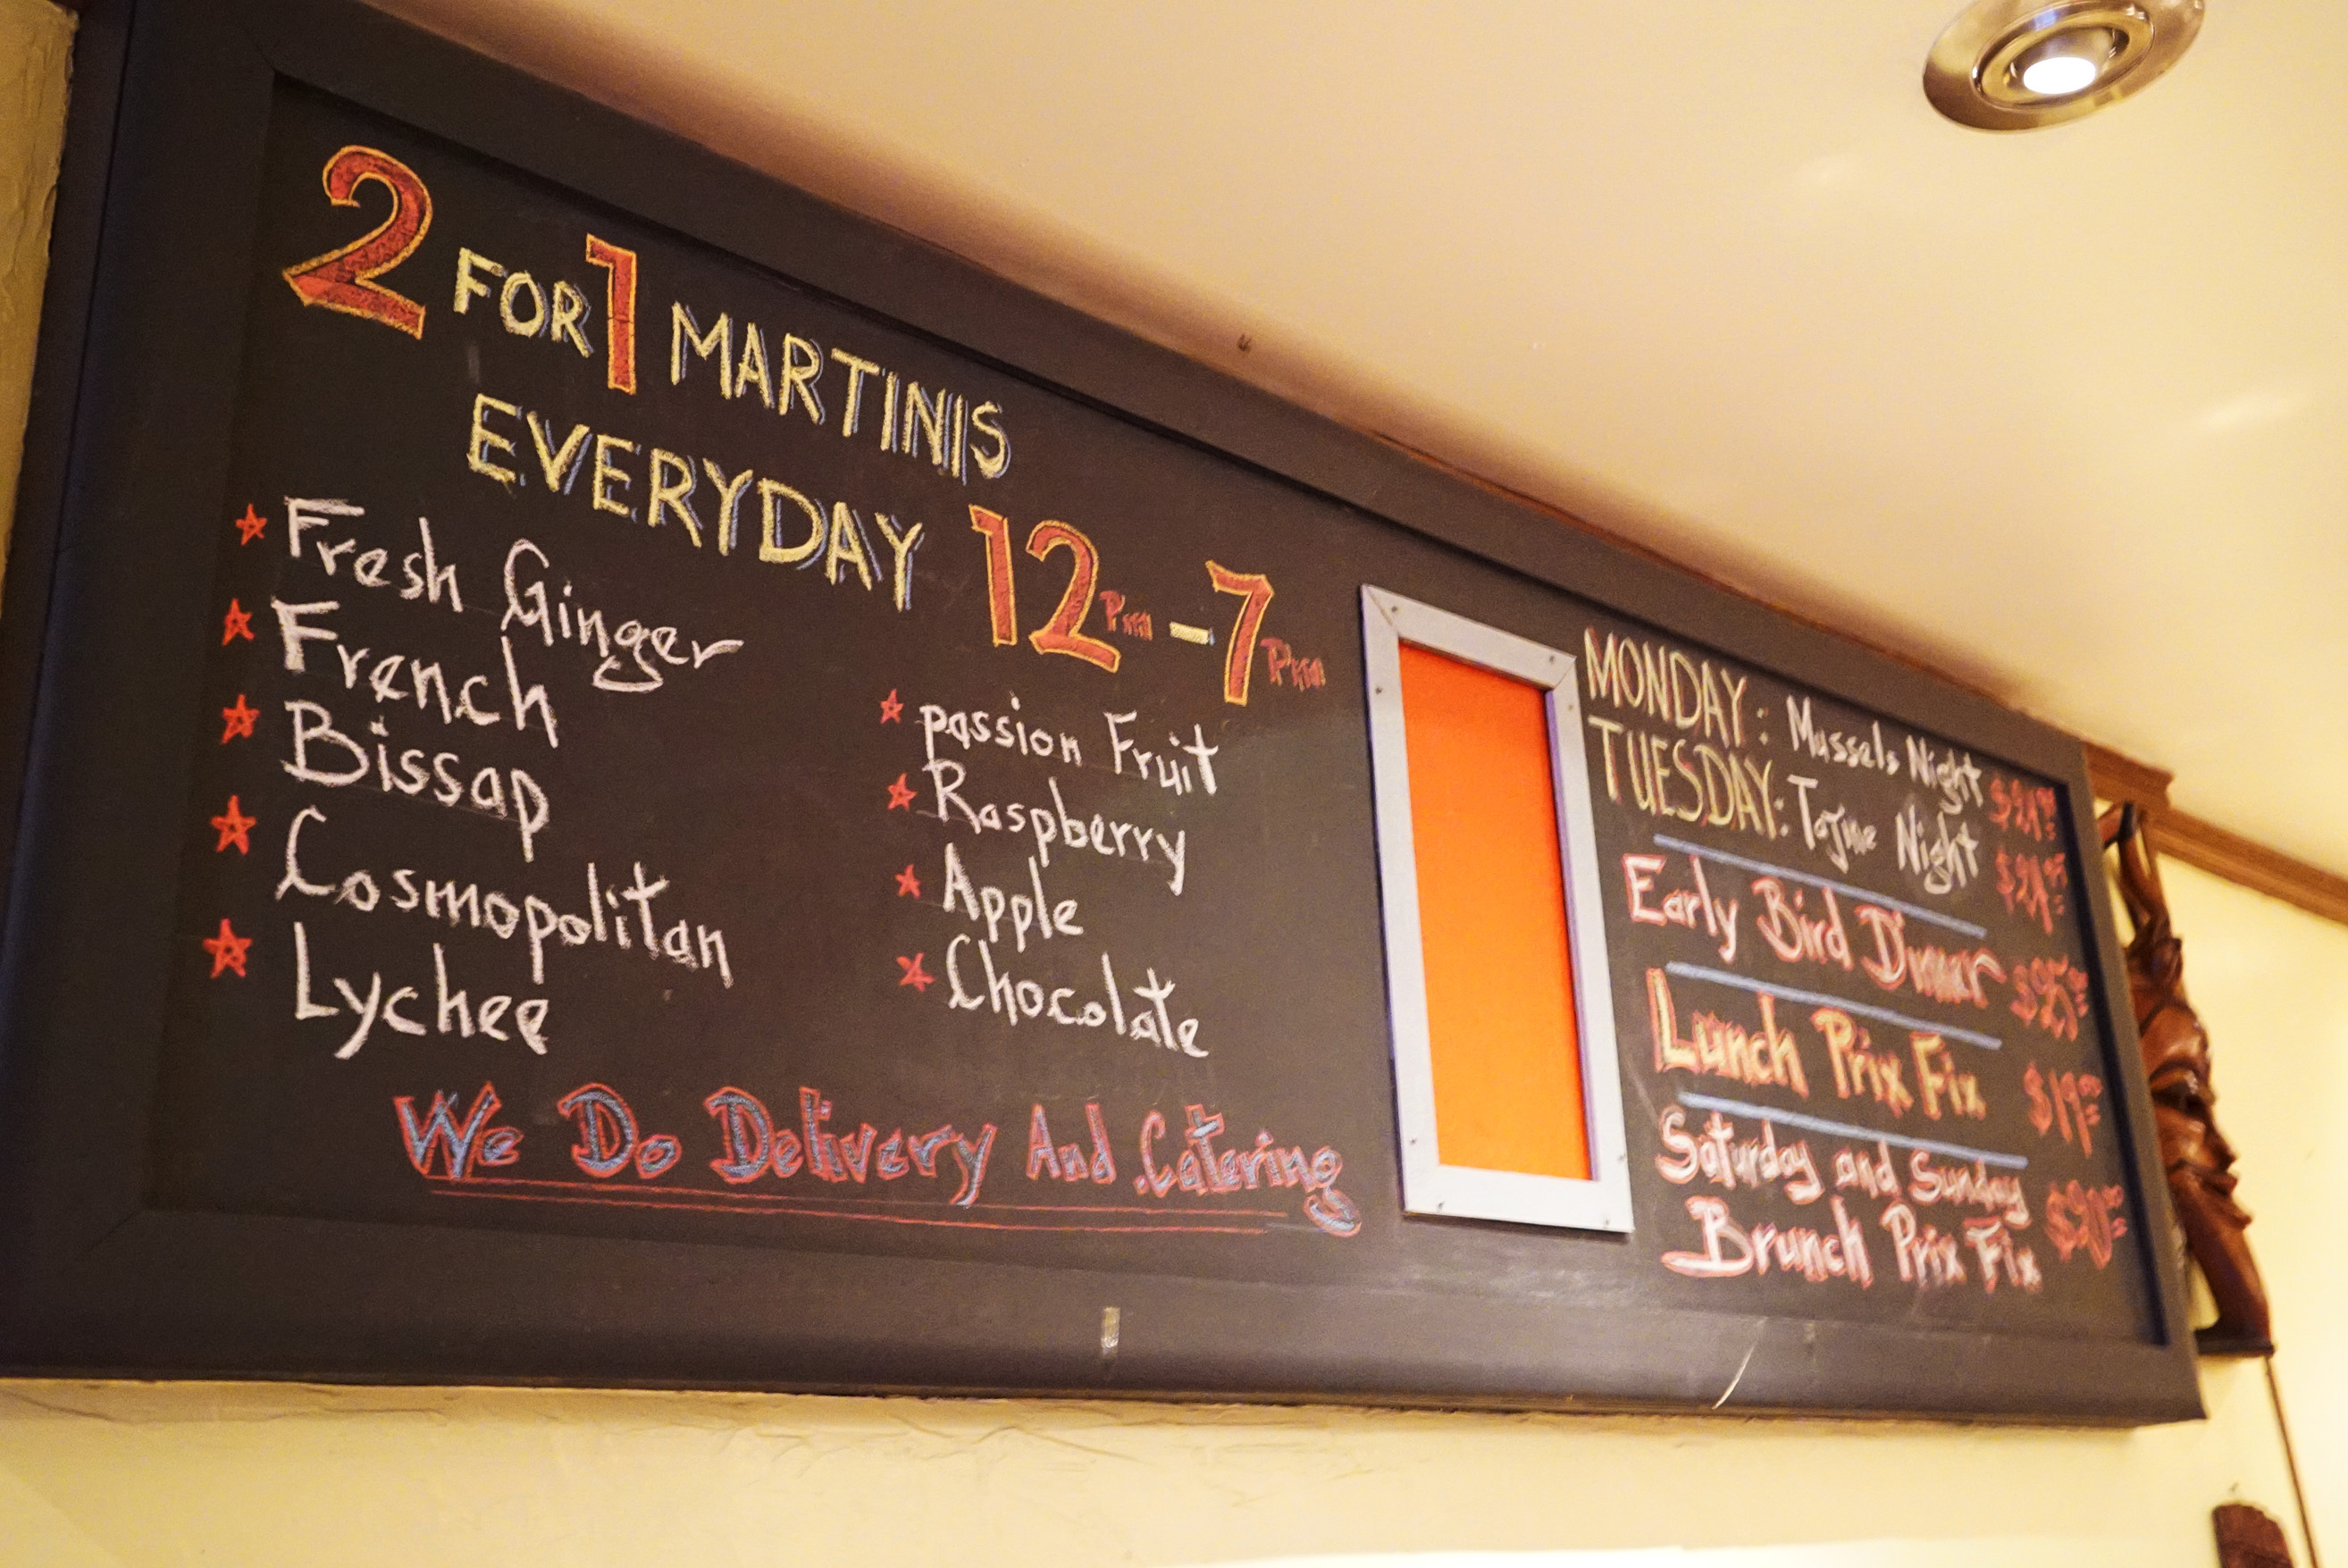 2 FOR 1 MARTINIS
EVERYDAY 12 Pm - 7 Pm
Fresh Ginger
French
Bissap
Cosmopolitan
Lychee
passion Fruit
Raspberry
Apple
Chocolate
We Do Delivery And Catering
MONDAY: Mussels Night
TUESDAY: Tajine Night
Early Bird Dinner
Lunch Prix Fix $19
Saturday and Sunday
Brunch Prix Fix